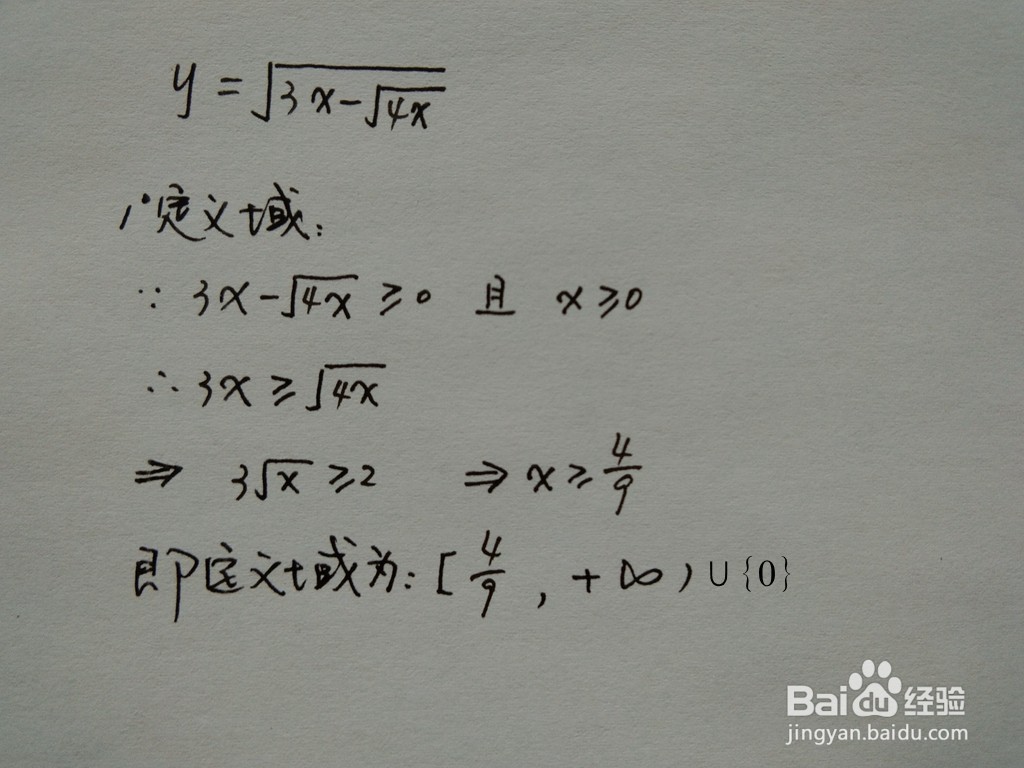 y = √(3x-√(4x))
1°定义域:
∵ 3x-√(4x) ≥0 且 x≥0
∴ 3x ≥ √(4x)
⇒ 3√x ≥2 ⇒ x≥4/9
即定义域为: [4/9 , +∞) ∪ {0}
Baidu经验
jingyan.baidu.com